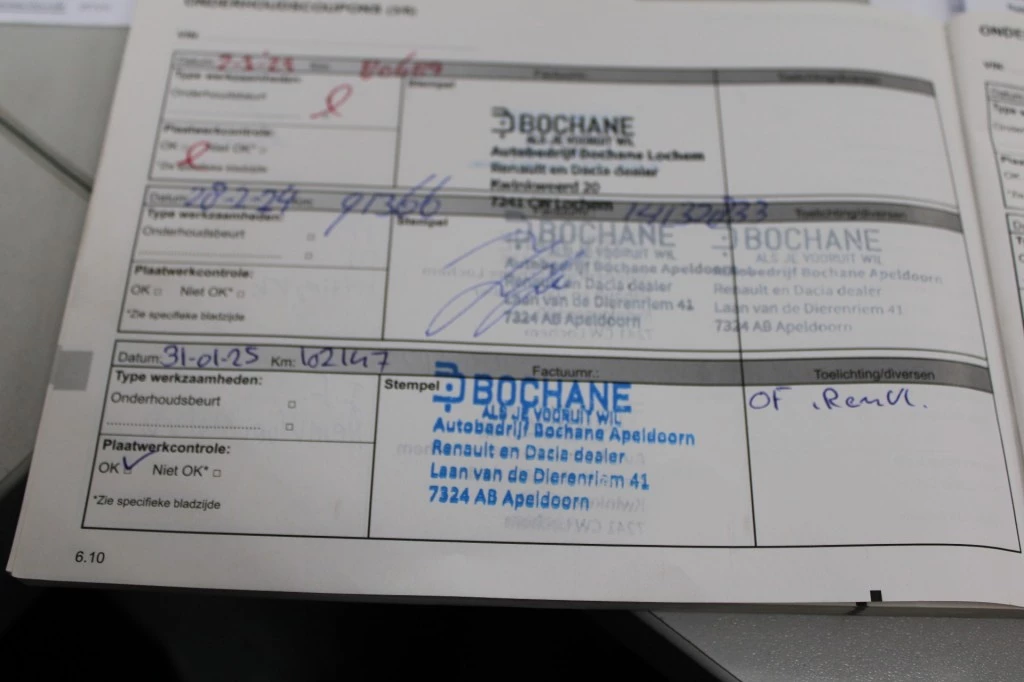 ONDERHOUDSCOUPONS
VIN:
Type werkzaamheden:
Onderhoudsbeurt
Plaatwerkcontrole:
OK Niet OK*
Factuurnr.:
Stempel
BOCHANE
ALS JE VOORUIT WIL
Autobedrijf Bochane Lochem
Renault en Dacia dealer
Kwinkweerd 20
7241 CW Lochem
Toelichting/diversen
Datum: 28-2-24 91366
Type werkzaamheden:
Onderhoudsbeurt
Plaatwerkcontrole:
OK Niet OK*
*Zie specifieke bladzijde
Stempel
BOCHANE
ALS JE VOORUIT WIL
Autobedrijf Bochane Apeldoorn
Renault en Dacia dealer
Laan van de Dierenriem 41
7324 AB Apeldoorn
Toelichting/diversen
BOCHANE
ALS JE VOORUIT WIL
Autobedrijf Bochane Apeldoorn
Renault en Dacia dealer
Laan van de Dierenriem 41
7324 AB Apeldoorn
Datum: 31-01-25 Km: 102147
Type werkzaamheden:
Onderhoudsbeurt
Plaatwerkcontrole:
OK Niet OK*
*Zie specifieke bladzijde
Factuurnr.:
Stempel
BOCHANE
ALS JE VOORUIT WIL
Autobedrijf Bochane Apeldoorn
Renault en Dacia dealer
Laan van de Dierenriem 41
7324 AB Apeldoorn
Toelichting/diversen
OF
6.10